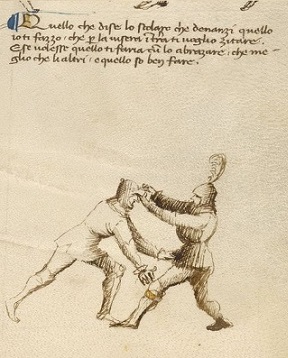 Quello che dise lo scolaro che denanzi quello
io ti fazzo, che per la visera in terra ti voglio zitare.
E se volesse quello ti faria cum lo abrazare, che me-
glio che li altri, e quello so ben fare.